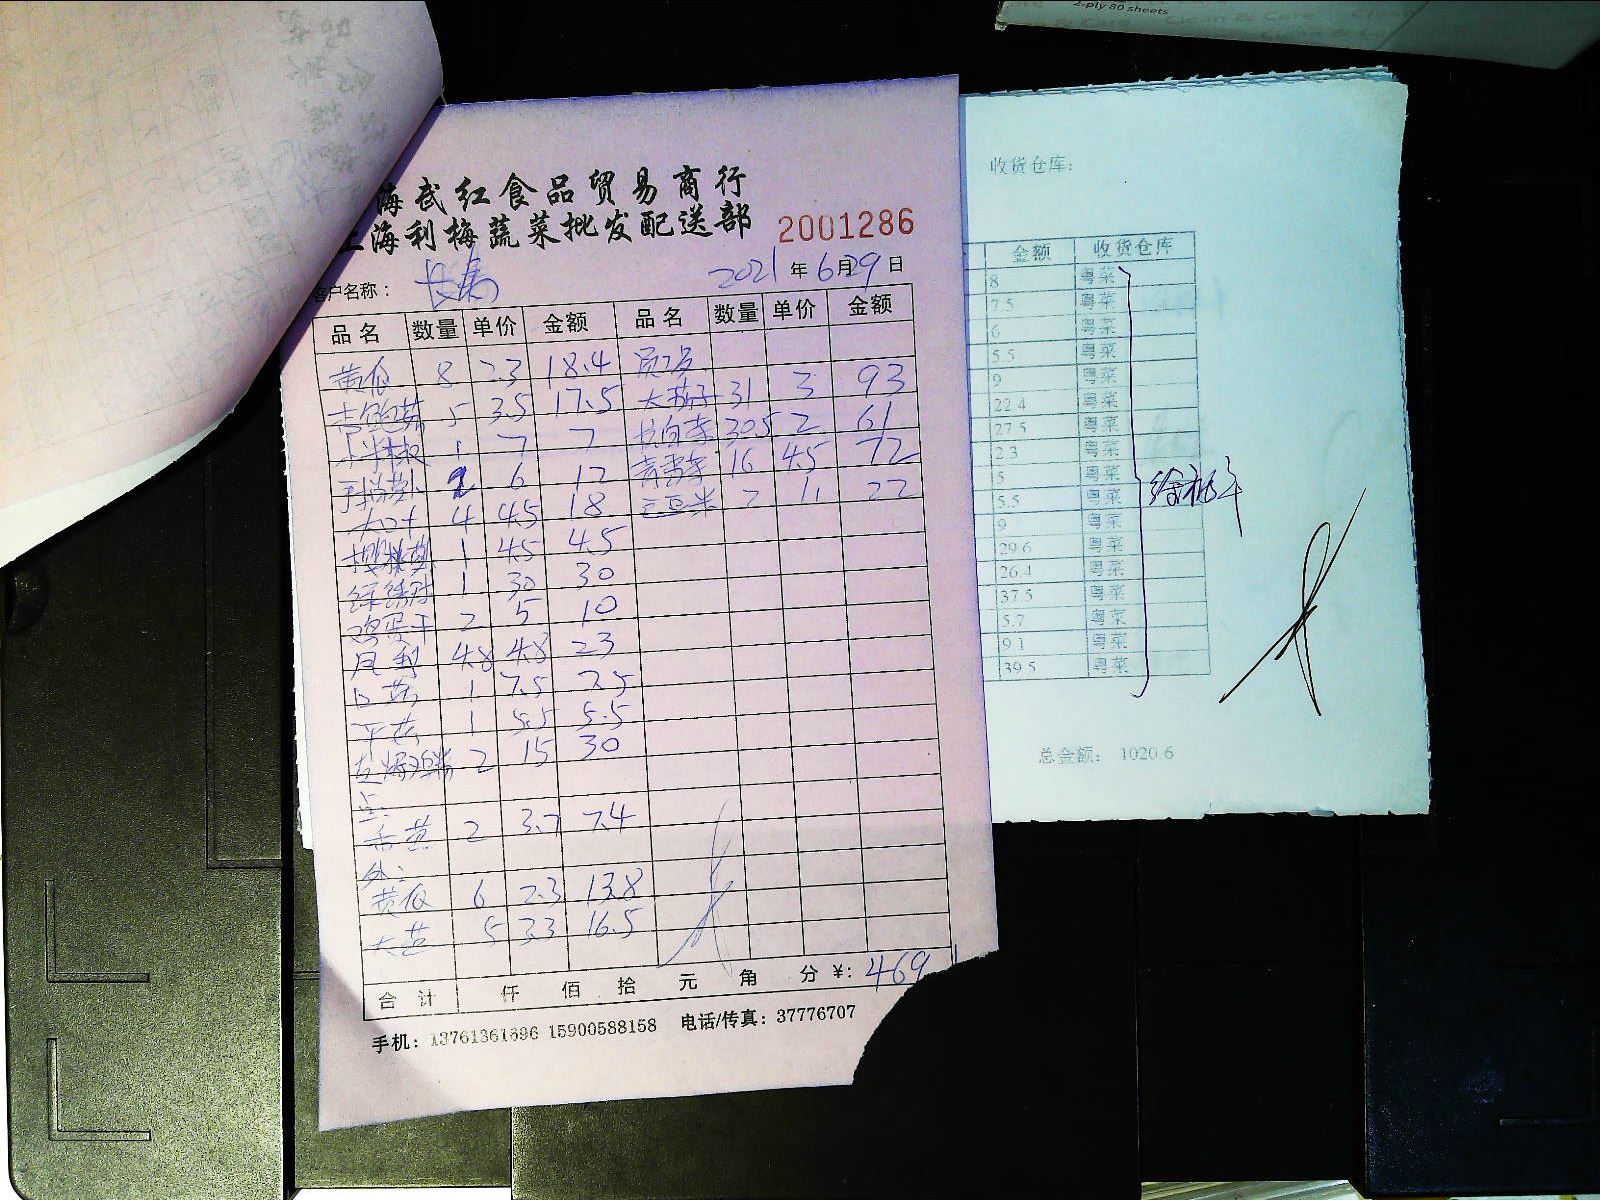 2-ply 80 sheets
Clean & Care
海武红食品贸易商行
上海利梅蔬菜批发配送部
2001286
客户名称：
2021年6月29日
品名 数量 单价 金额 品名 数量 单价 金额
黄瓜 8 2.3 18.4 员工
5 3.5 17.5 大茄子 31 3 93
小米椒 1 7 7 30.5 2 61
2 6 12 16 4.5 72
4 4.5 18 毛豆米 2 11 22
1 4.5 4.5
1 30 30
鸡蛋干 2 5 10
4.8 4.8 23
1 7.5 7.5
1 5.5 5.5
2 15 30
2 3.7 7.4
外：
黄瓜 6 2.3 13.8
5 3.3 16.5
合计 仟 佰 拾 元 角 分 ¥: 469
手机：13761361696 15900588158 电话/传真：37776707
收货仓库：
金额 收货仓库
8 粤菜
7.5 粤菜
6 粤菜
5.5 粤菜
9 粤菜
22.4 粤菜
27.5 粤菜
2.3 粤菜
5 粤菜
5.5 粤菜
9 粤菜
29.6 粤菜
26.4 粤菜
37.5 粤菜
5.7 粤菜
9.1 粤菜
39.5 粤菜
总金额： 1020.6